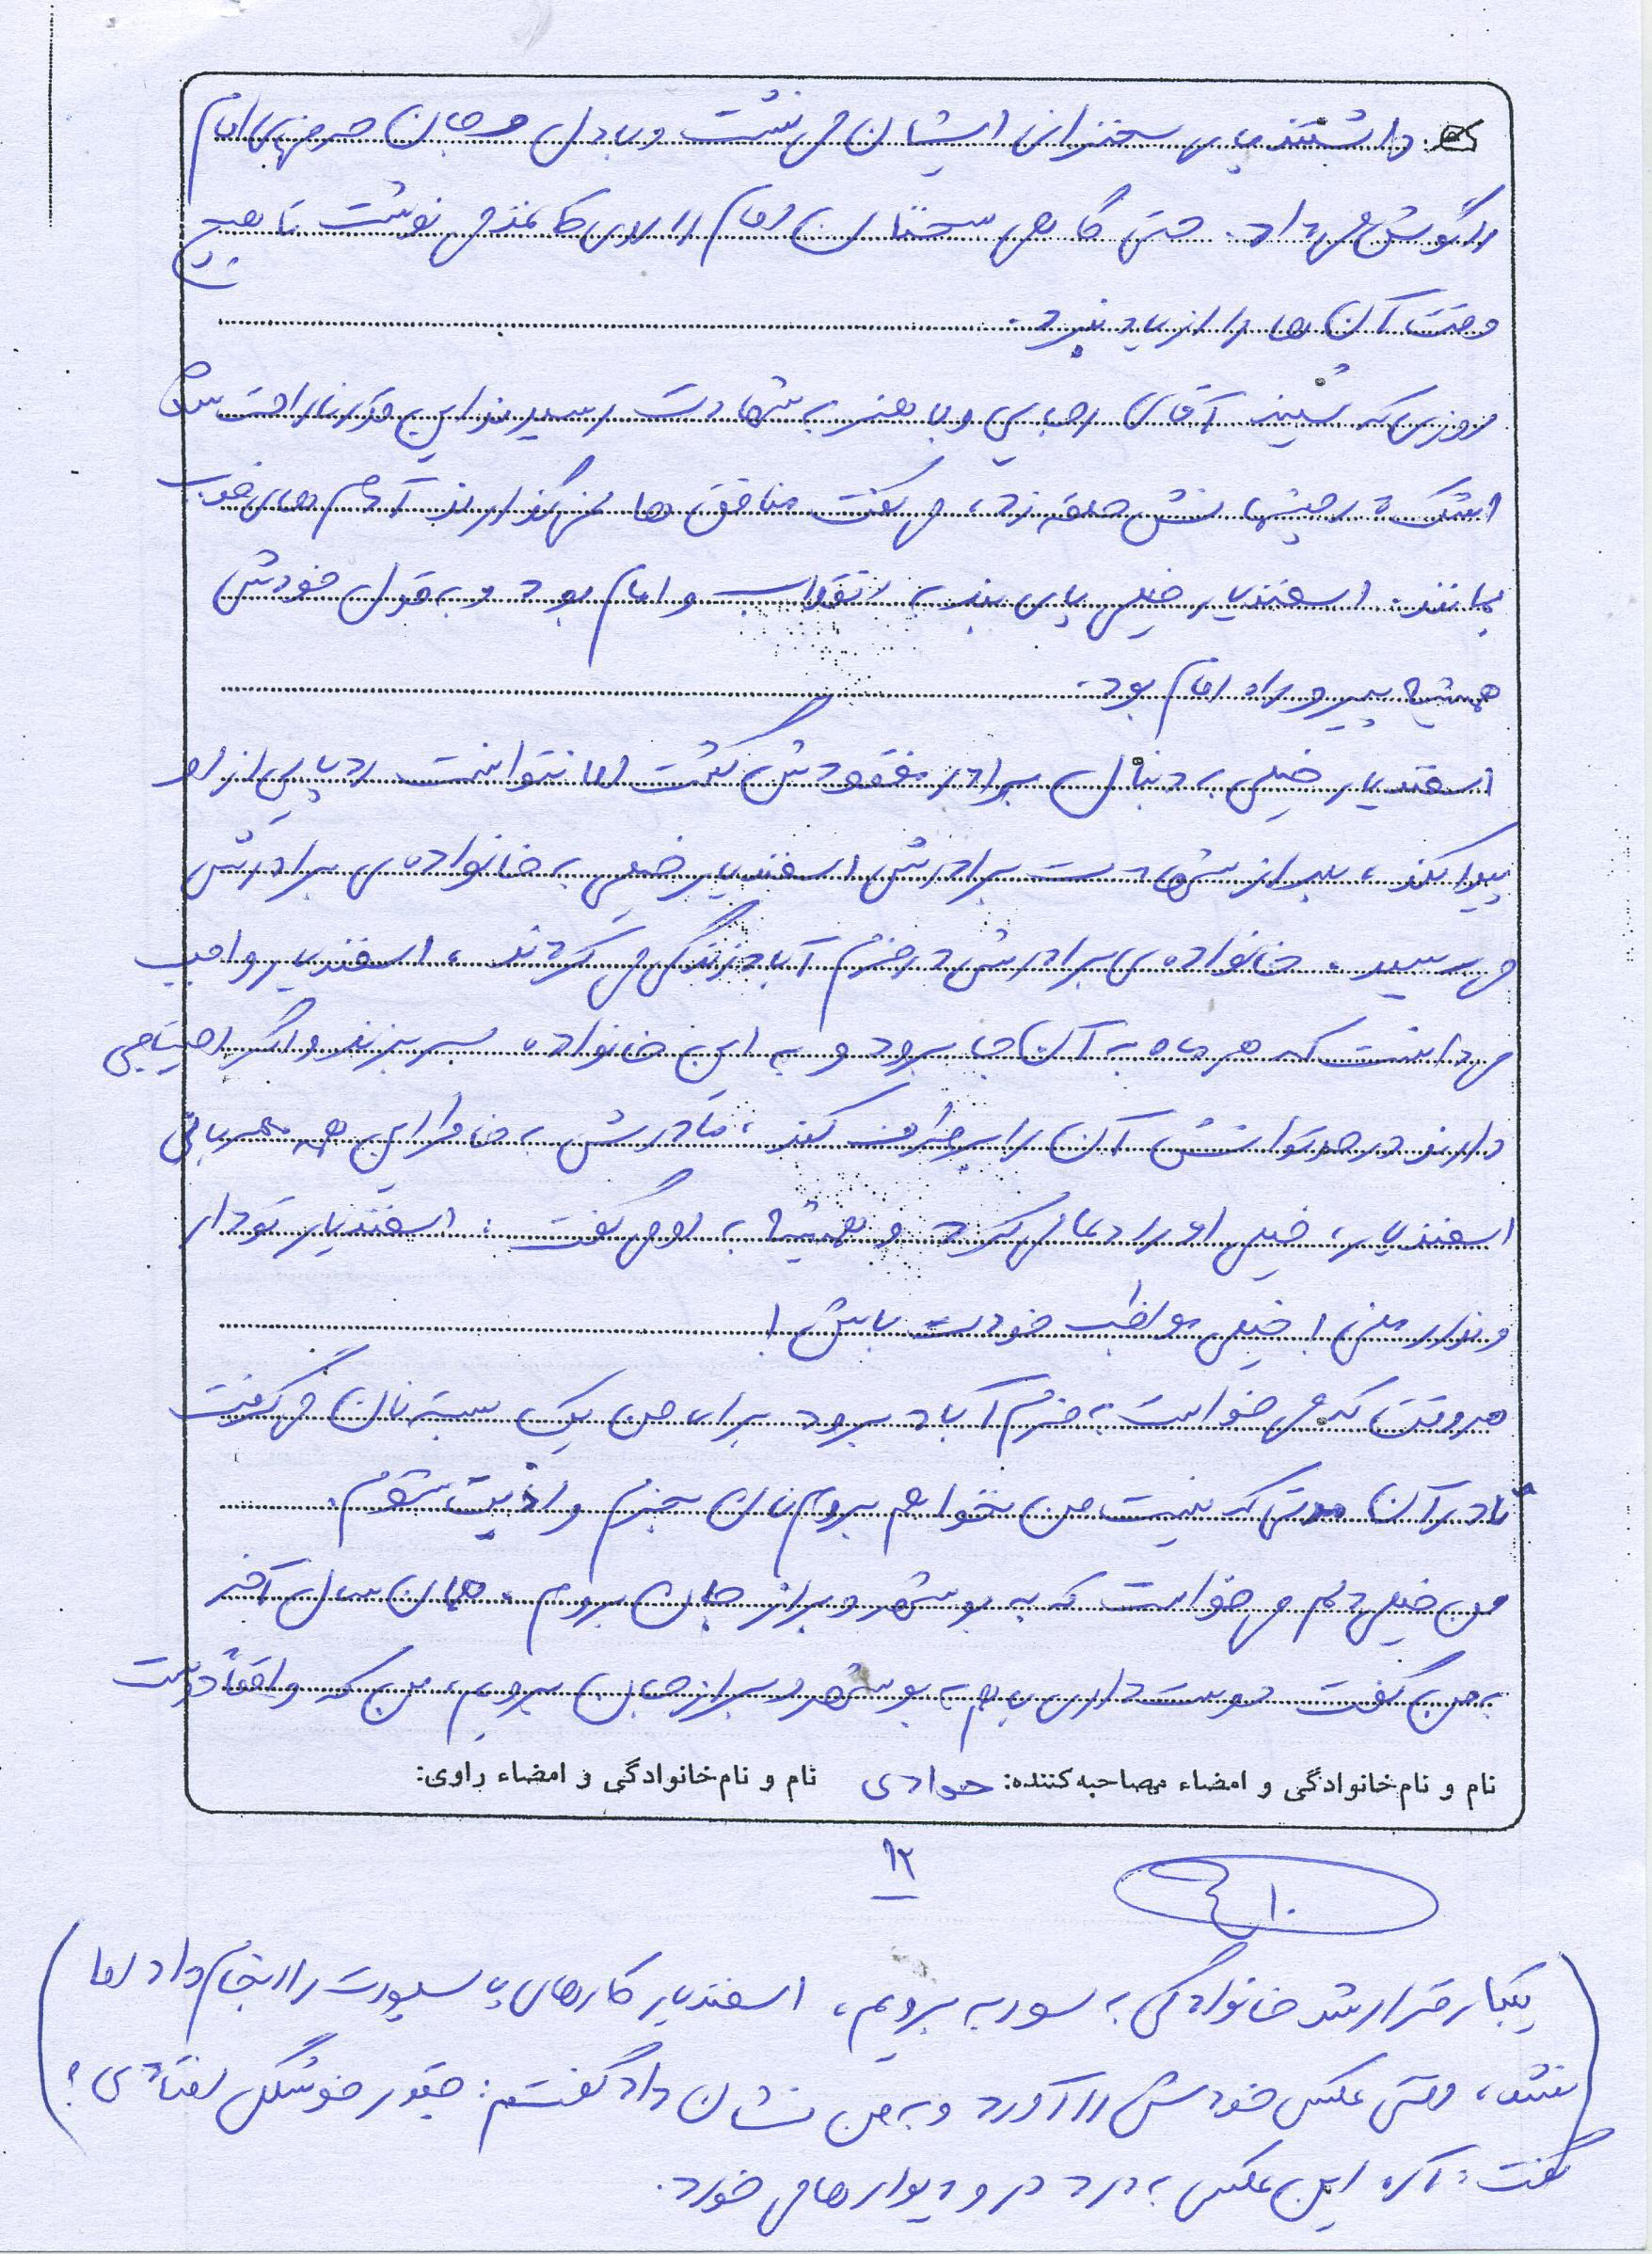 داشتند پای سخنرانی ایشان می نشست و با دل و جان حرفهای امام
را گوش می داد. حتی گاهی سخنان امام را روی کاغذ می نوشت تا هیچ
وقت آن ها را از یاد نبرد.
روزی که شنید آقای رجایی و باهنر به شهادت رسیدند این قدر ناراحت شد که
اشک در چشمانش حلقه زد، می گفت منافق ها نمی گذارند آدم های خوب
بمانند. اسفندیار خیلی پای بند به انقلاب و امام بود و به قول خودش
همیشه پیرو راه امام بود.
اسفندیار خیلی به دنبال برادر مفقودش گشت اما نتوانست ردپایی از او
پیدا کند، بعد از شهادت برادرش اسفندیار خیلی به خانواده ی برادرش
می رسید. خانواده ی برادرش در خرم آباد زندگی می کردند، اسفندیار واجب
می دانست که هر ماه به آن جا برود و به این خانواده سر بزند و اگر احتیاجی
دارند در حد توانش آن را برطرف کند، مادرش به خاطر این همه مهربانی
اسفندیار، خیلی او را دعا می کرد و همیشه به او می گفت: اسفندیار تو دار
و ندار منی! خیلی مواظب خودت باش!
هر وقت که می خواست به خرم آباد برود برای من یک بسته نان می گرفت
تا در آن مدتی که نیست من نخواهم بروم نان بخرم و اذیت شوم.
من خیلی دلم می خواست که به بوشهر و برازجان بروم. همان سال آخر
به من گفت دوست داری با هم به بوشهر و برازجان برویم، من که واقعاً دوست
نام و نام خانوادگی و امضاء مصاحبه کننده: جوادی نام و نام خانوادگی و امضاء راوی:
۱۲
۱۰
(یکبار قرار شد خانوادگی به سوریه برویم، اسفندیار کارهای پاسپورت را انجام داد اما
نشد، وقتی عکس خودش را آورد و به من نشان داد گفتم: چقدر خوشگل افتادی؟)
گفت: آره این عکس به درد در و دیوارها می خورد.